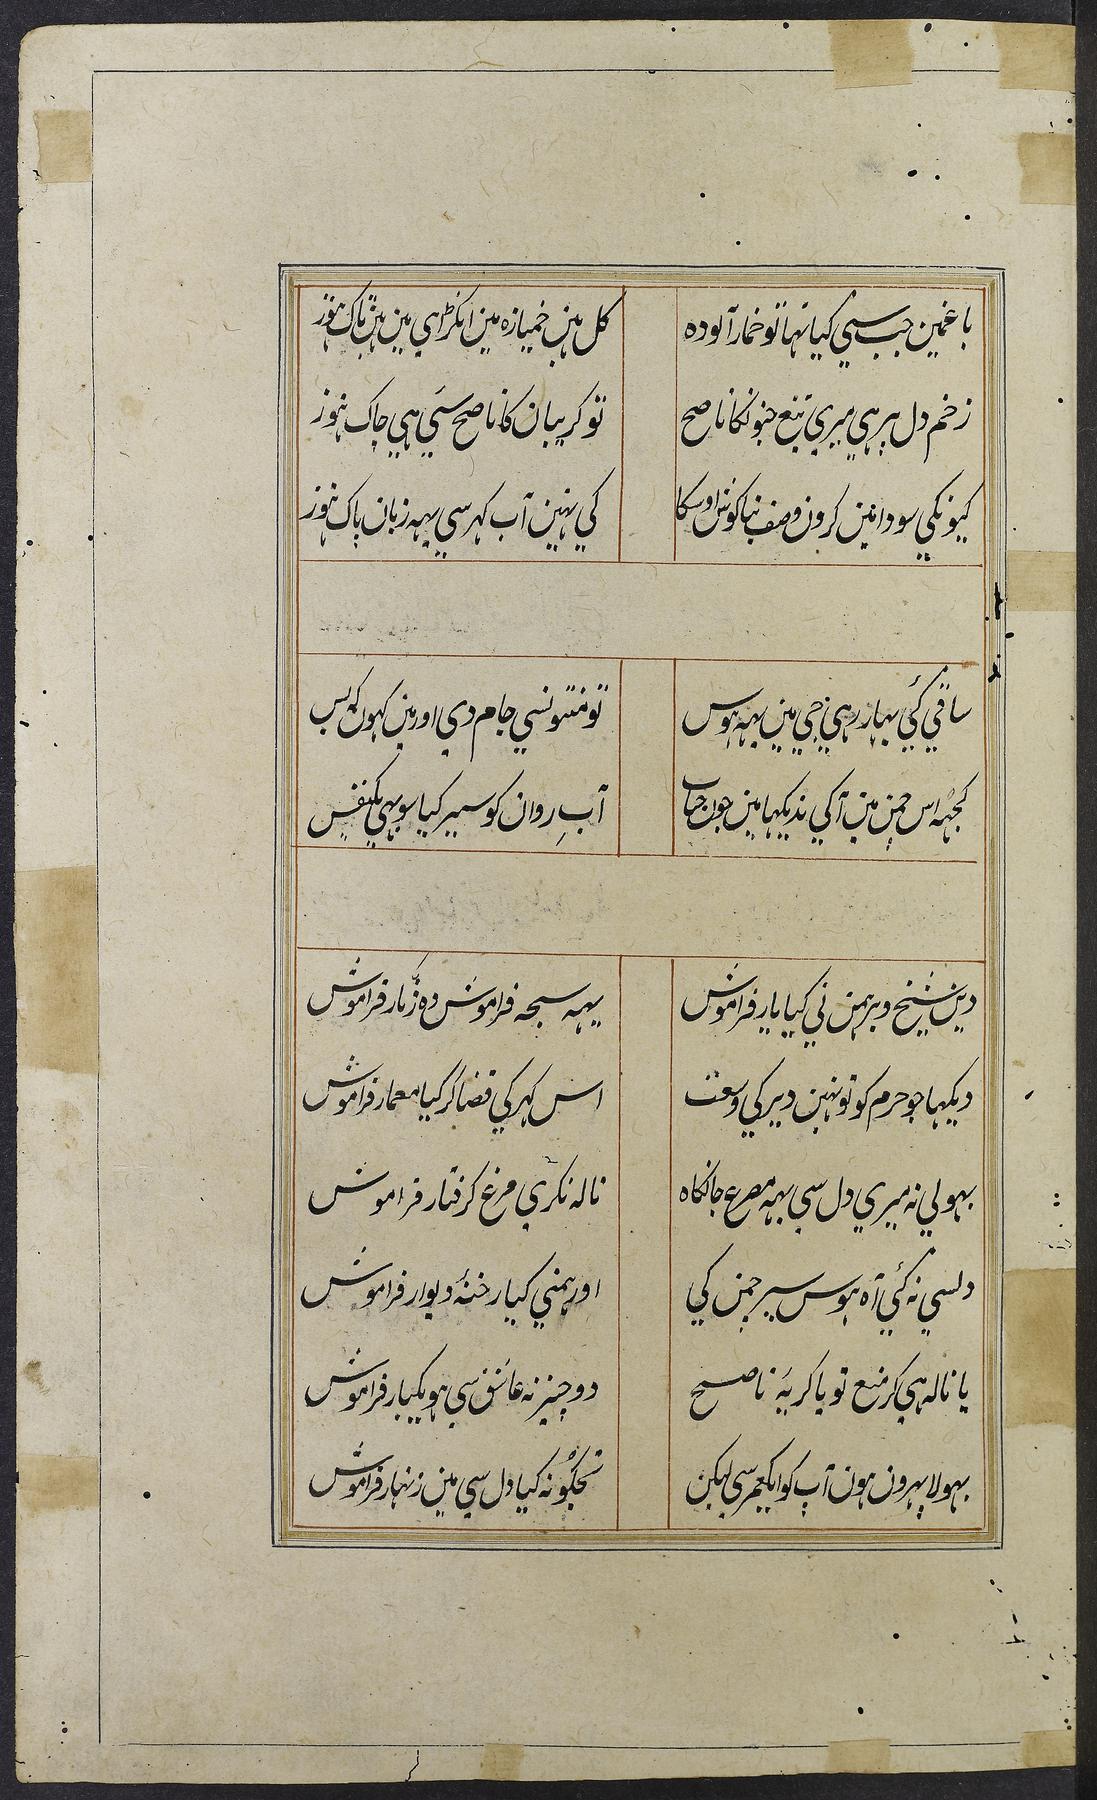 باغمین جب سی کیا تہا تو خمار آلوده
کل ہین خمیازه مین انکڑاہی مین ہین تاک ہنوز
زخم دل پر ہی میری تیغ جنونکا ناصح
تو کریبان کا ناصح سیٔ ہی چاک ہنوز
کیونکی سودا مین کرون وصف بناکوش اوسکا
کی نہین آب کہر سی یہہ زبان پاک ہنوز
ساقی کئی بہار رہی جی مین یہہ ہوس
تو منتونسی جام دی اور مین کہون کہ بس
کجہہ اس چمن مین آکی ندیکہا مین جون حباب
آبِ روان کو سیر کیا سو بہی یکنفس
دین شیخ و برہمن نی کیا یار فراموش
یہہ سبحہ فراموش وه زنّار فراموش
دیکہا جو حرم کو تو نہین دیر کی وسعت
اس کہر کی فضا کر کیا معمار فراموش
بہولی نہ میری دل سی یہہ مصرع جانکاه
ناله نکری مرغ کرفتار فراموش
دلسی نہ کئی آه ہوس سیر چمن کی
اور ہمنی کیا رخنۂ دیوار فراموش
یا ناله ہی کر منع تو یا کریۂ ناصح
دو چیز نہ عاشق سی ہو یکبار فراموش
بہولا پہرون ہون آپ کو ایکعمر سی لیکن
تجکو نہ کیا دل سی مین زنہار فراموش